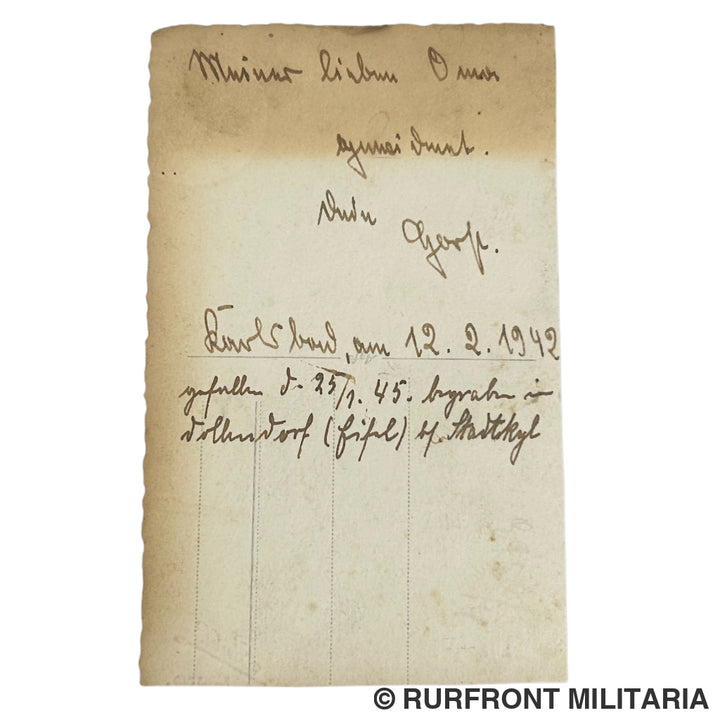 Meiner lieben Oma
zugeeidnet.
Dein
Horst.
Karlsbad, am 12. 2. 1942
gefallen d. 25/1. 45. begraben in
Dollendorf (Eifel) b/ Stadtkyl
© RURFRONT MILITARIA